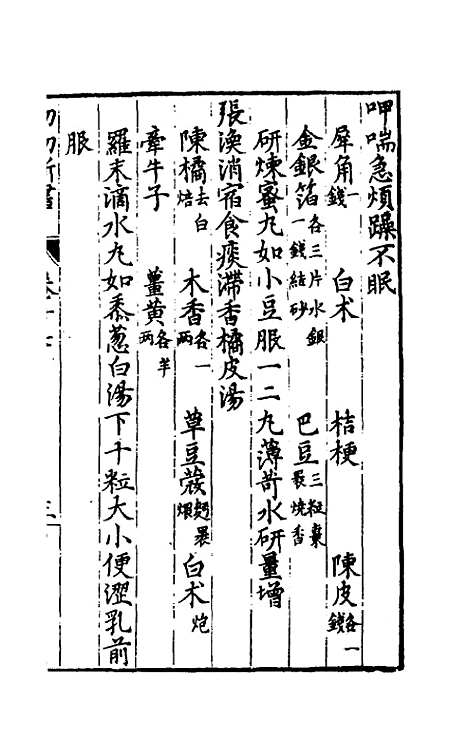 呷喘急煩躁不眠
犀角一錢 白术 桔梗 陳皮各一錢
金銀箔各三片水銀一錢結砂 巴豆三粒棗裹燒香
研煉蜜丸如小豆服一二丸薄荷水研量增
張渙消宿食痰滯香橘皮湯
陳橘去白焙 木香各一兩 草豆蔻麪裹煨 白术炮
牽牛子 薑黃各半兩
羅末滴水丸如黍葱白湯下十粒大小便澀乳前
服
幼幼新書